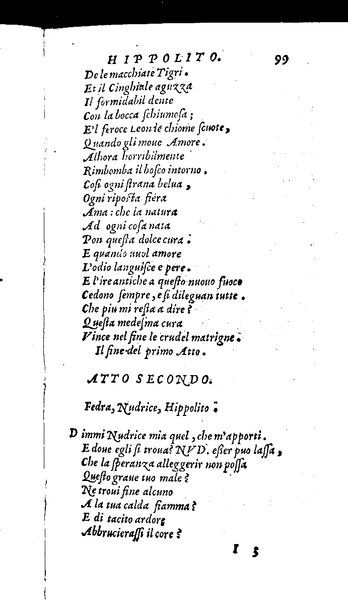 HIPPOLITO. 99
De le macchiate Tigri.
Et il Cinghiale aguzza
Il formidabil dente
Con la bocca schiumosa;
E'l feroce Leon le chiome scuote,
Quando gli moue Amore.
Alhora horribilmente
Rimbomba il bosco intorno.
Cosi ogni strana belua,
Ogni riposta fiera
Ama: che la natura
Ad ogni cosa nata
Pon questa dolce cura:
E quando vuol amore
L'odio languisce e pere.
E l'ire antiche a questo nuouo fuoco
Cedono sempre, e si dileguan tutte.
Che piu mi resta a dire?
Questa medesma cura
Vince nel fine le crudel matrigne.
Il fine del primo Atto.
ATTO SECONDO.
Fedra, Nudrice, Hippolito.
Dimmi Nudrice mia quel, che m'apporti.
E doue egli si troua? NVD. esser puo lassa,
Che la speranza alleggerir non possa
Questo graue tuo male?
Ne troui fine alcuno
A la tua calda fiamma?
E di tacito ardore
Abbrucierassi il core?
I 3